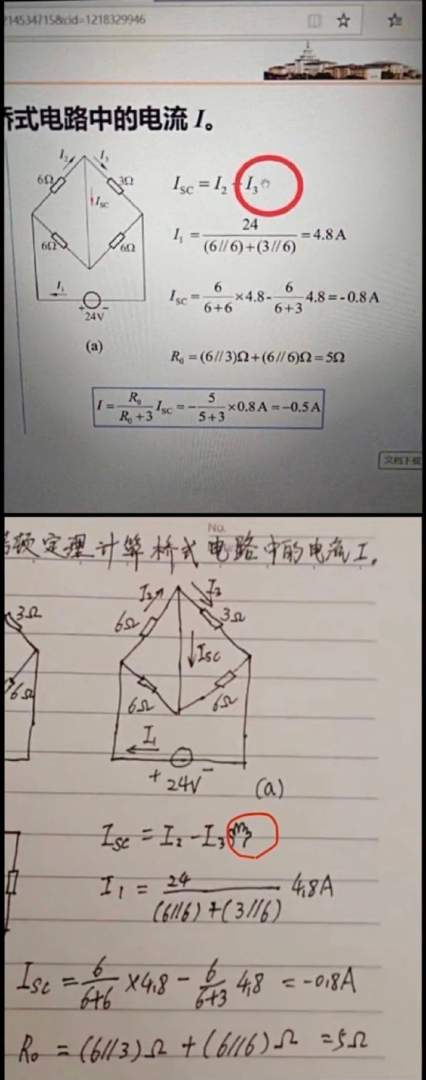 ?14534715&cid=1218329946
桥式电路中的电流 I。
I₂ I₃
6Ω 3Ω
I_SC
6Ω 6Ω
I₁
+ −
24V
(a)
I_SC = I₂ - I₃
I₁ = 24/((6//6)+(3//6)) = 4.8 A
I_SC = 6/(6+6) ×4.8 - 6/(6+3) 4.8 = -0.8 A
R₀ = (6//3)Ω + (6//6)Ω = 5Ω
I = R₀/(R₀+3) I_SC = - 5/(5+3) ×0.8 A = -0.5 A
文档下载
No.
顿定理计算桥式电路中的电流 I。
3Ω
6Ω
I₂ I₃
6Ω 3Ω
I_SC
6Ω 6Ω
I₁
+ 24V −
(a)
I_SC = I₂ - I₃
I₁ = 24/((6//6)+(3//6)) 4.8A
I_SC = 6/(6+6) ×4.8 - 6/(6+3) 4.8 = -0.8A
R₀ = (6//3)Ω + (6//6)Ω = 5Ω